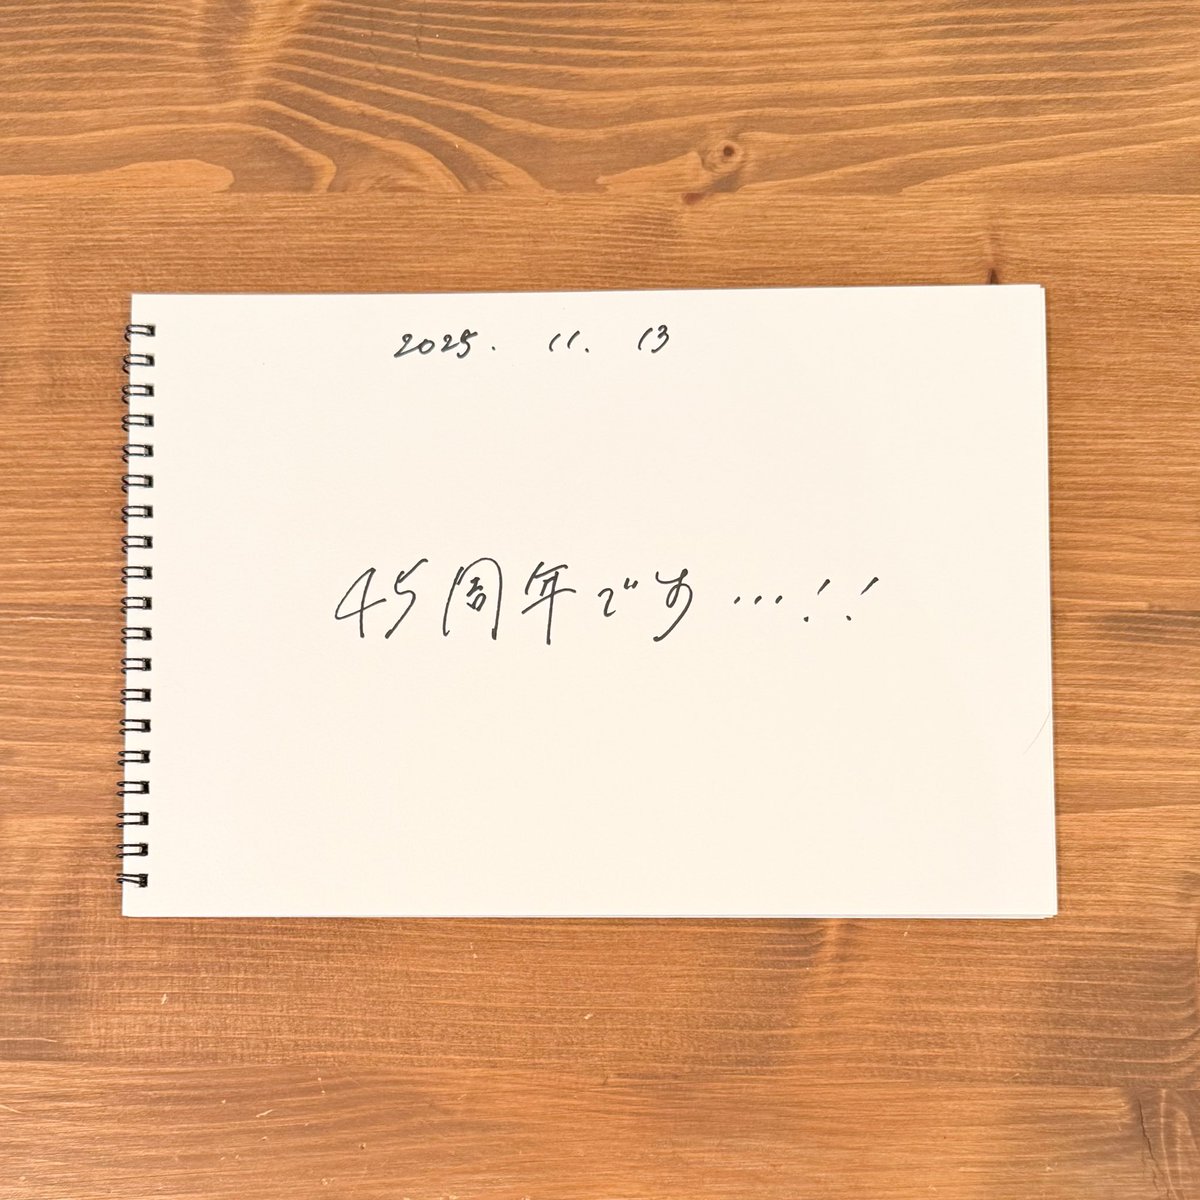 2025. 11. 13
45周年です…!!